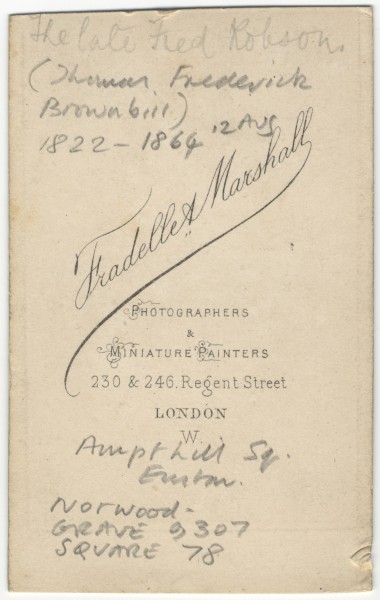 The late Fred Robson.
(Thomas Frederick
Brownbill)
1822 - 1864 12 Aug
Fradelle & Marshall
PHOTOGRAPHERS
&
MINIATURE PAINTERS
230 & 246. Regent Street
LONDON
W.
Ampthill Sq.
Euston.
NORWOOD -
GRAVE 9307
SQUARE 78